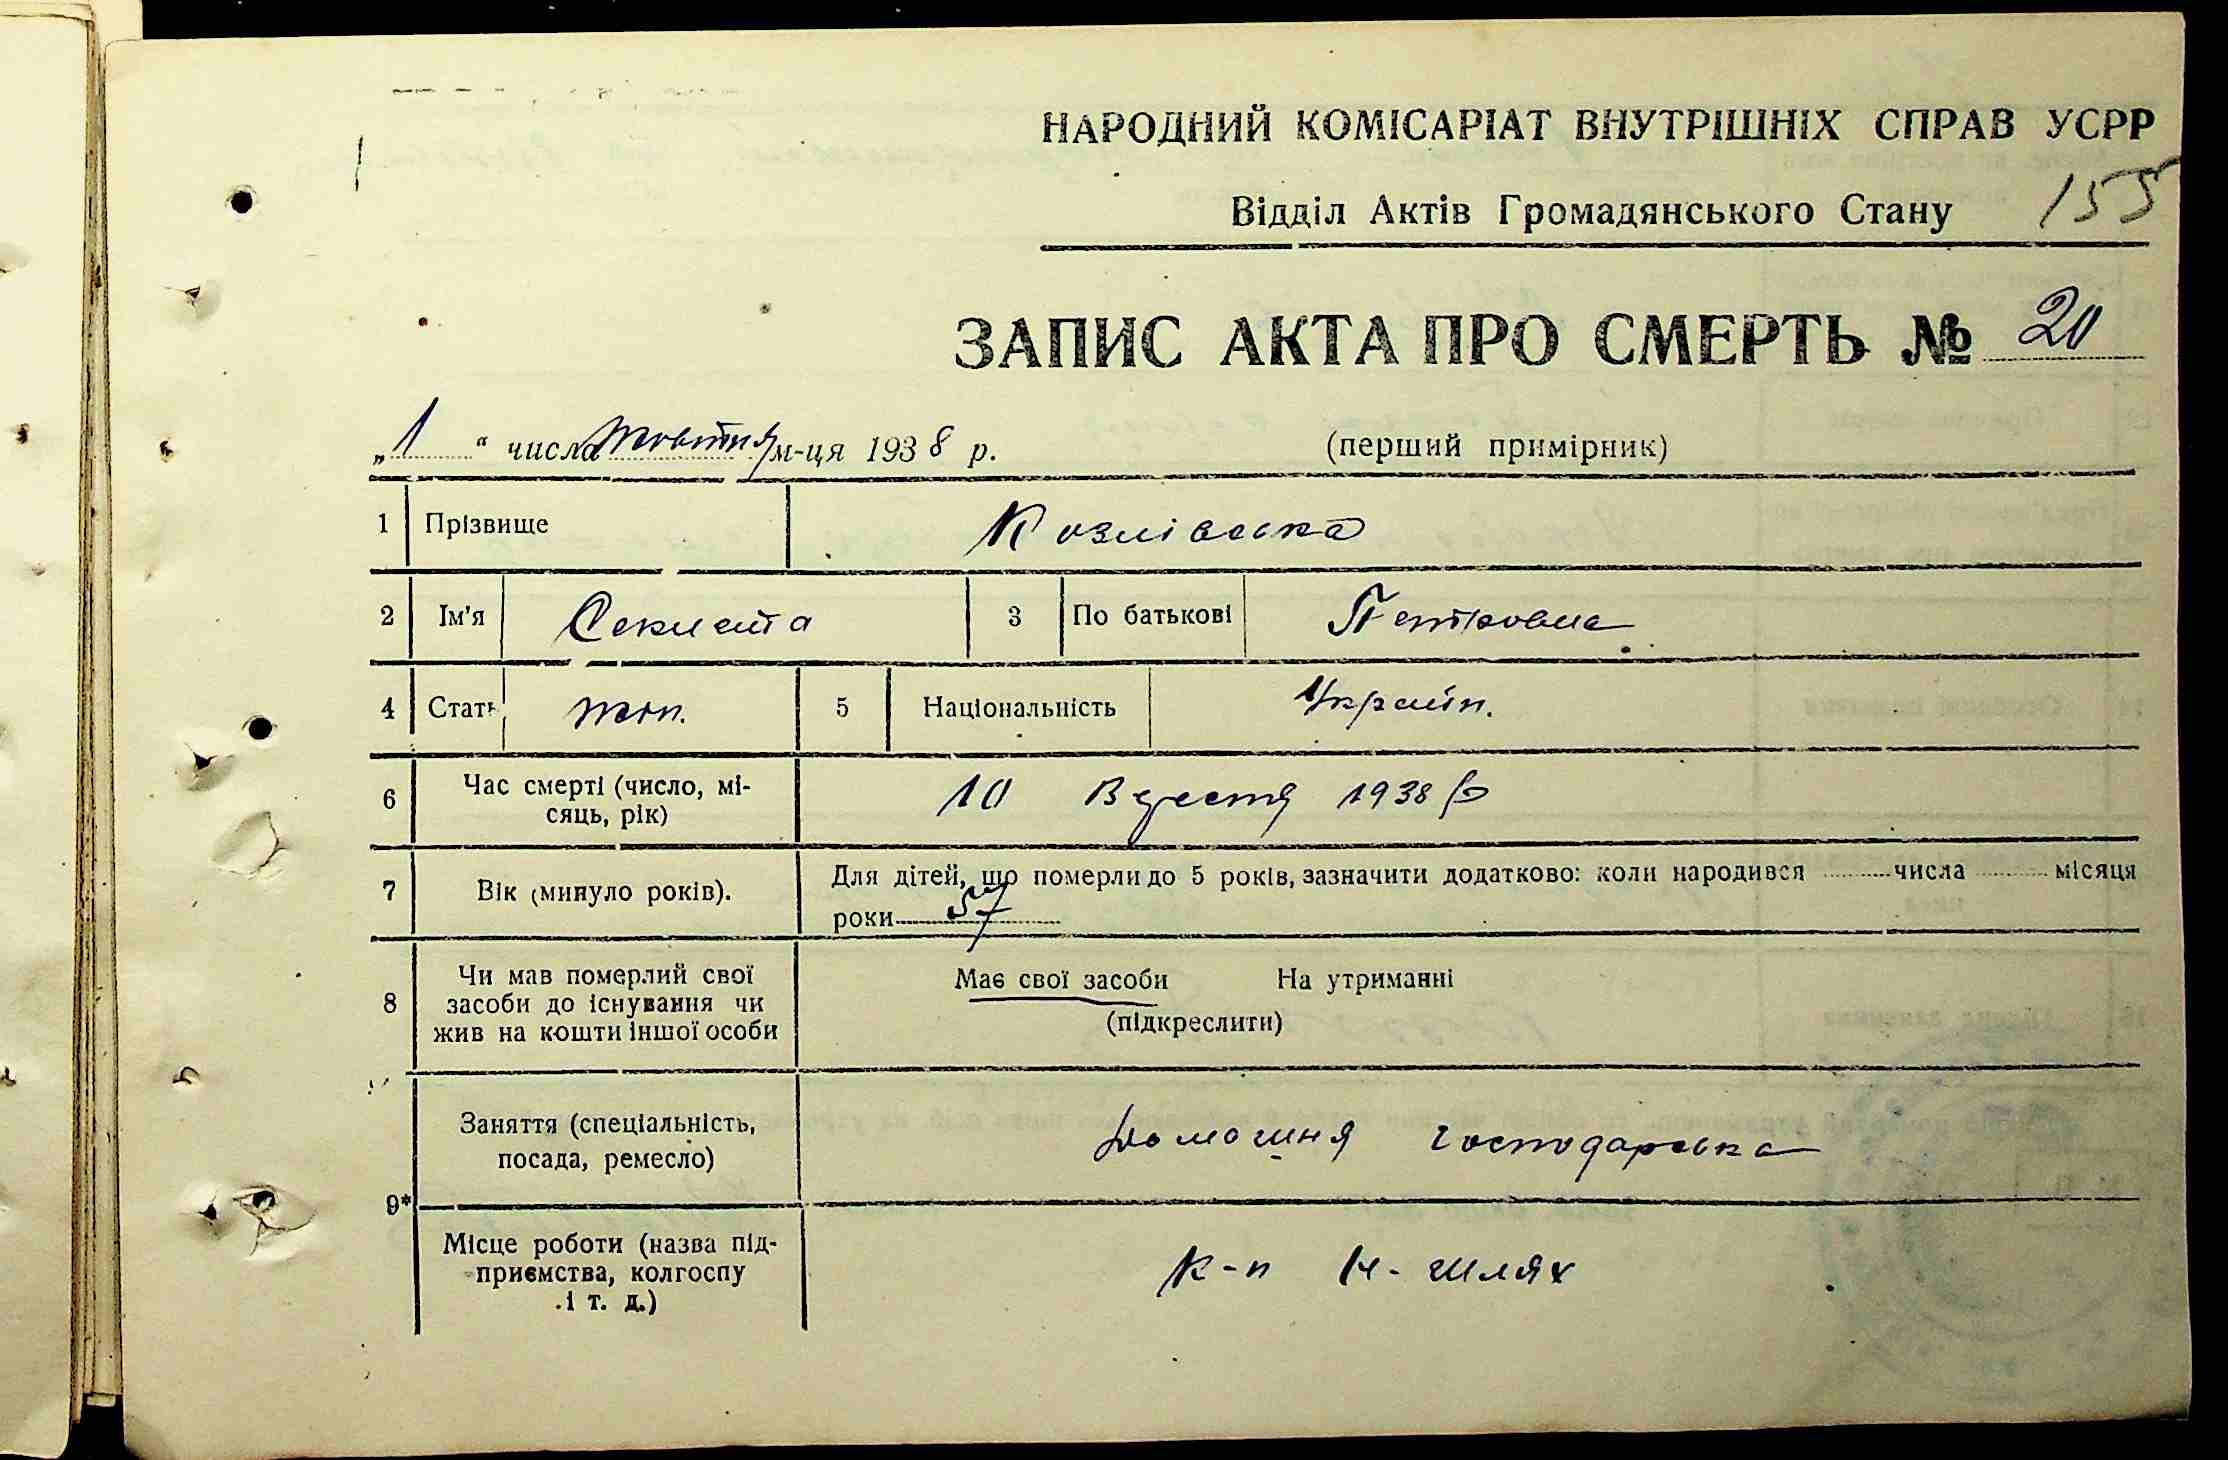 НАРОДНИЙ КОМІСАРІАТ ВНУТРІШНІХ СПРАВ УСРР
Відділ Актів Громадянського Стану 155
ЗАПИС АКТА ПРО СМЕРТЬ № 20
„1“ числа жовтня м-ця 1938 р. (перший примірник)
1 Прізвище Козлівська
2 Ім'я Секлета 3 По батькові Петровна
4 Стать жін. 5 Національність Україн.
6 Час смерті (число, мі-
сяць, рік) 10 Вересня 1938 р
7 Вік (минуло років). Для дітей, що померли до 5 років, зазначити додатково: коли народився числа місяця
роки 57
8 Чи мав померлий свої
засоби до існування чи
жив на кошти іншої особи
Має свої засоби На утриманні
(підкреслити)
9* Заняття (спеціальність,
посада, ремесло) Домашня господарська
Місце роботи (назва під-
приємства, колгоспу
і т. д.) к-п Н-шлях